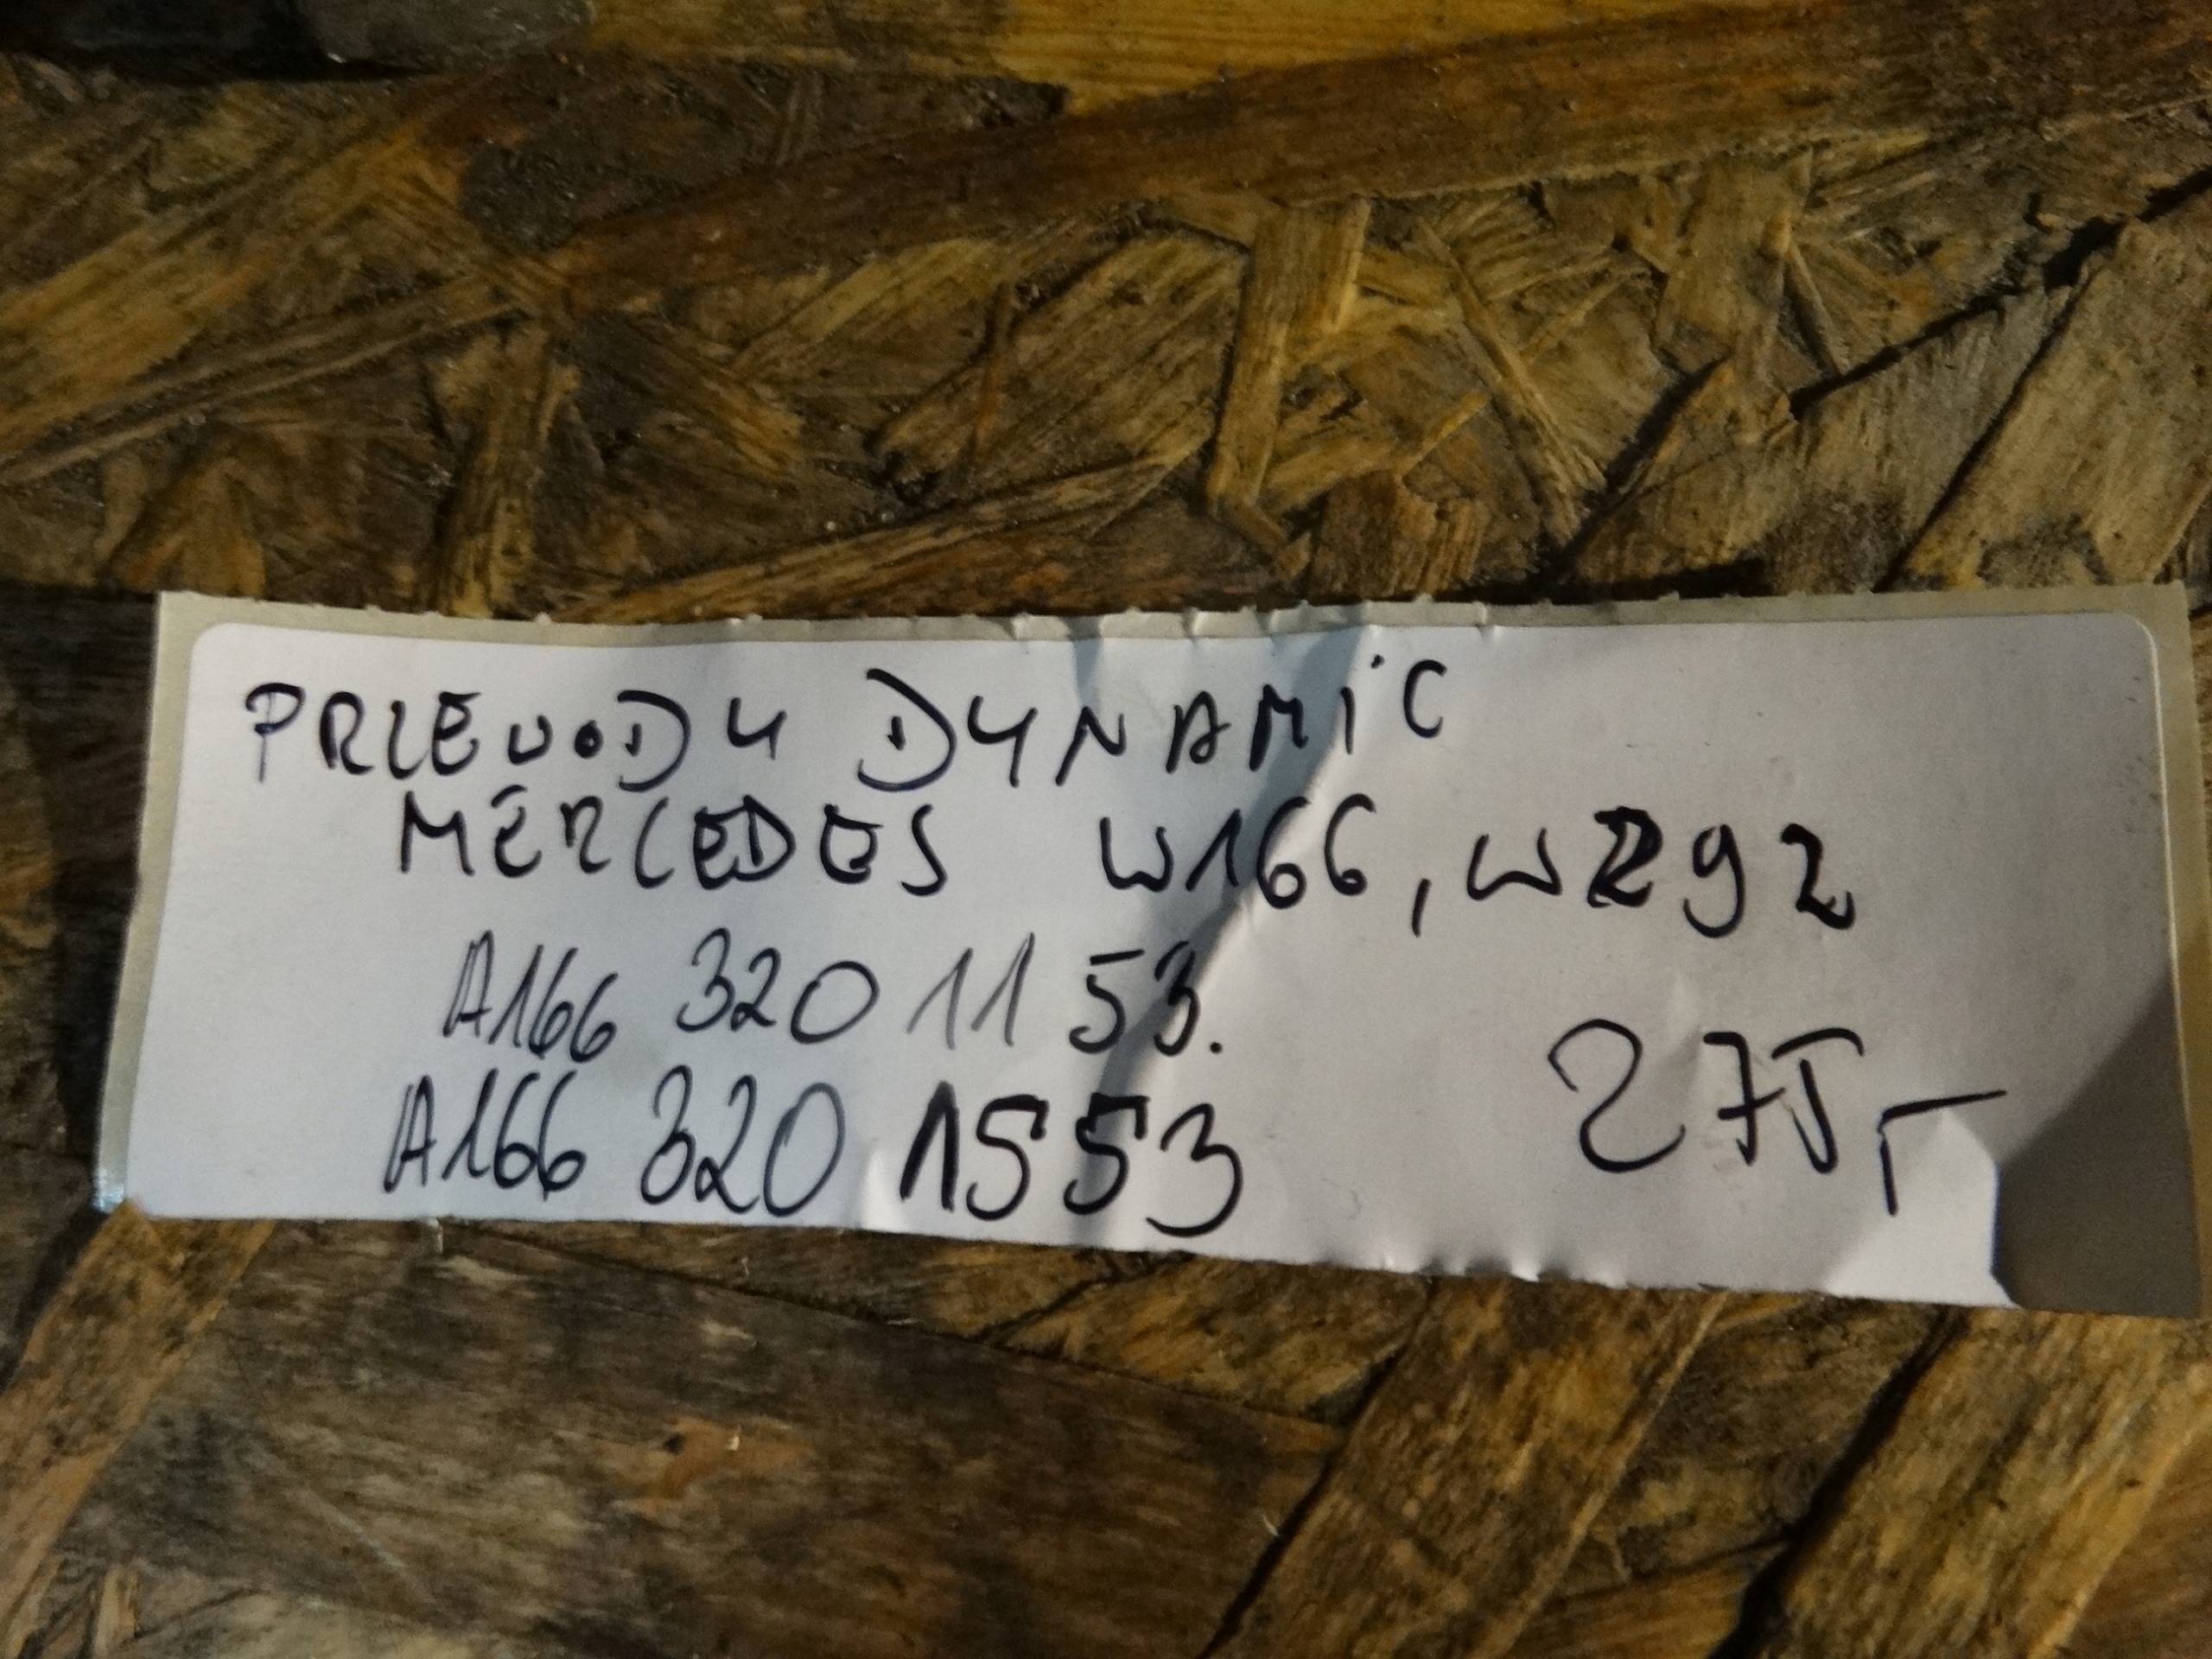 PRZEWODY DYNAMIC
MERCEDES W166, W292
A166 320 11 53.
A166 320 1553
275,-